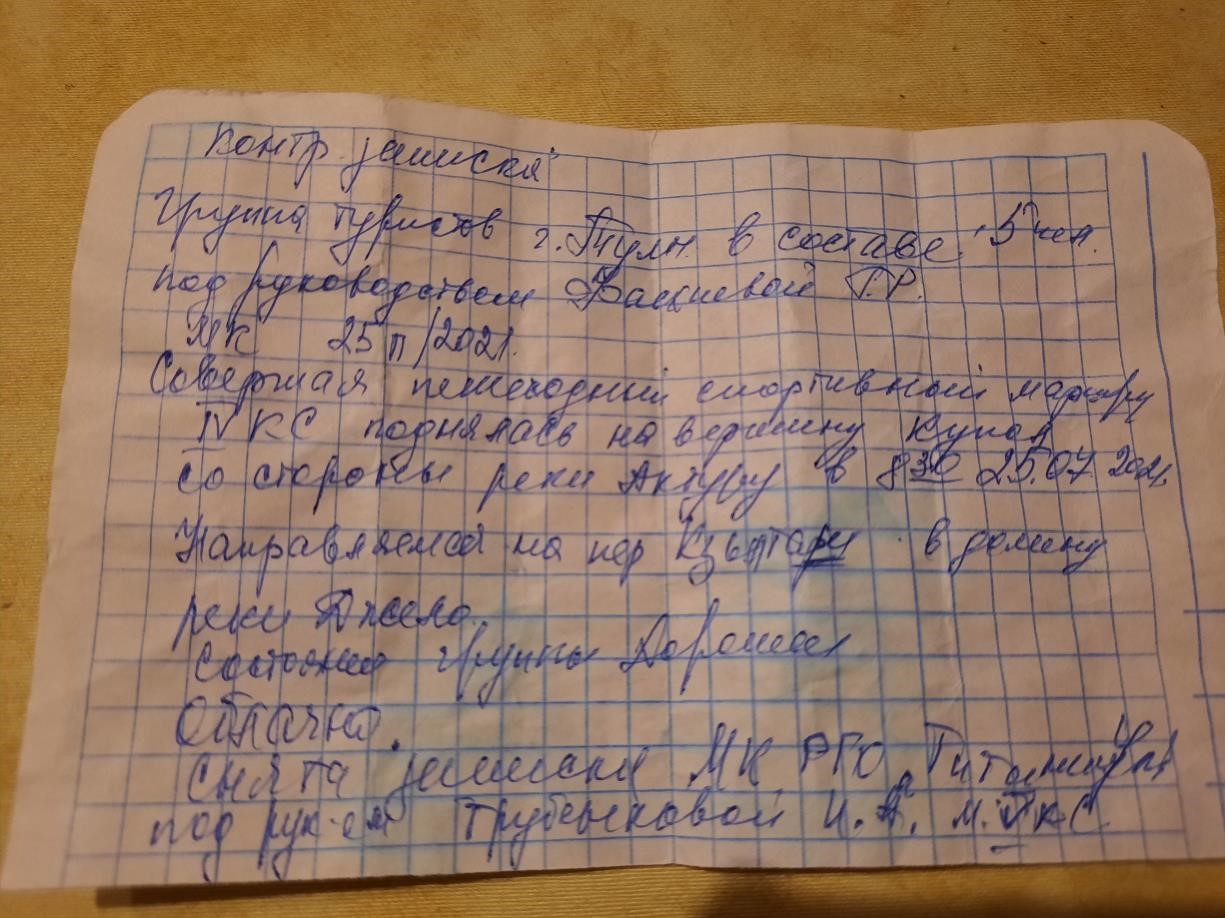 Контр. записка
Группа туристов г. Тулы в составе 5 чел.
под руководством Фаскиевой Г.Р.
МК 25п/2021.
Совершая пешеходный спортивный маршрут
IV КС поднялась на вершину Купол
со стороны реки Актуру в 8 30 25.07 2021.
Направляемся на пер Кзылташ в долину
реки Джело.
Состояние группы Хорошее
Облачно.
снята записка МК РГО
под рук-ом Трубенковой И.А. м. КС